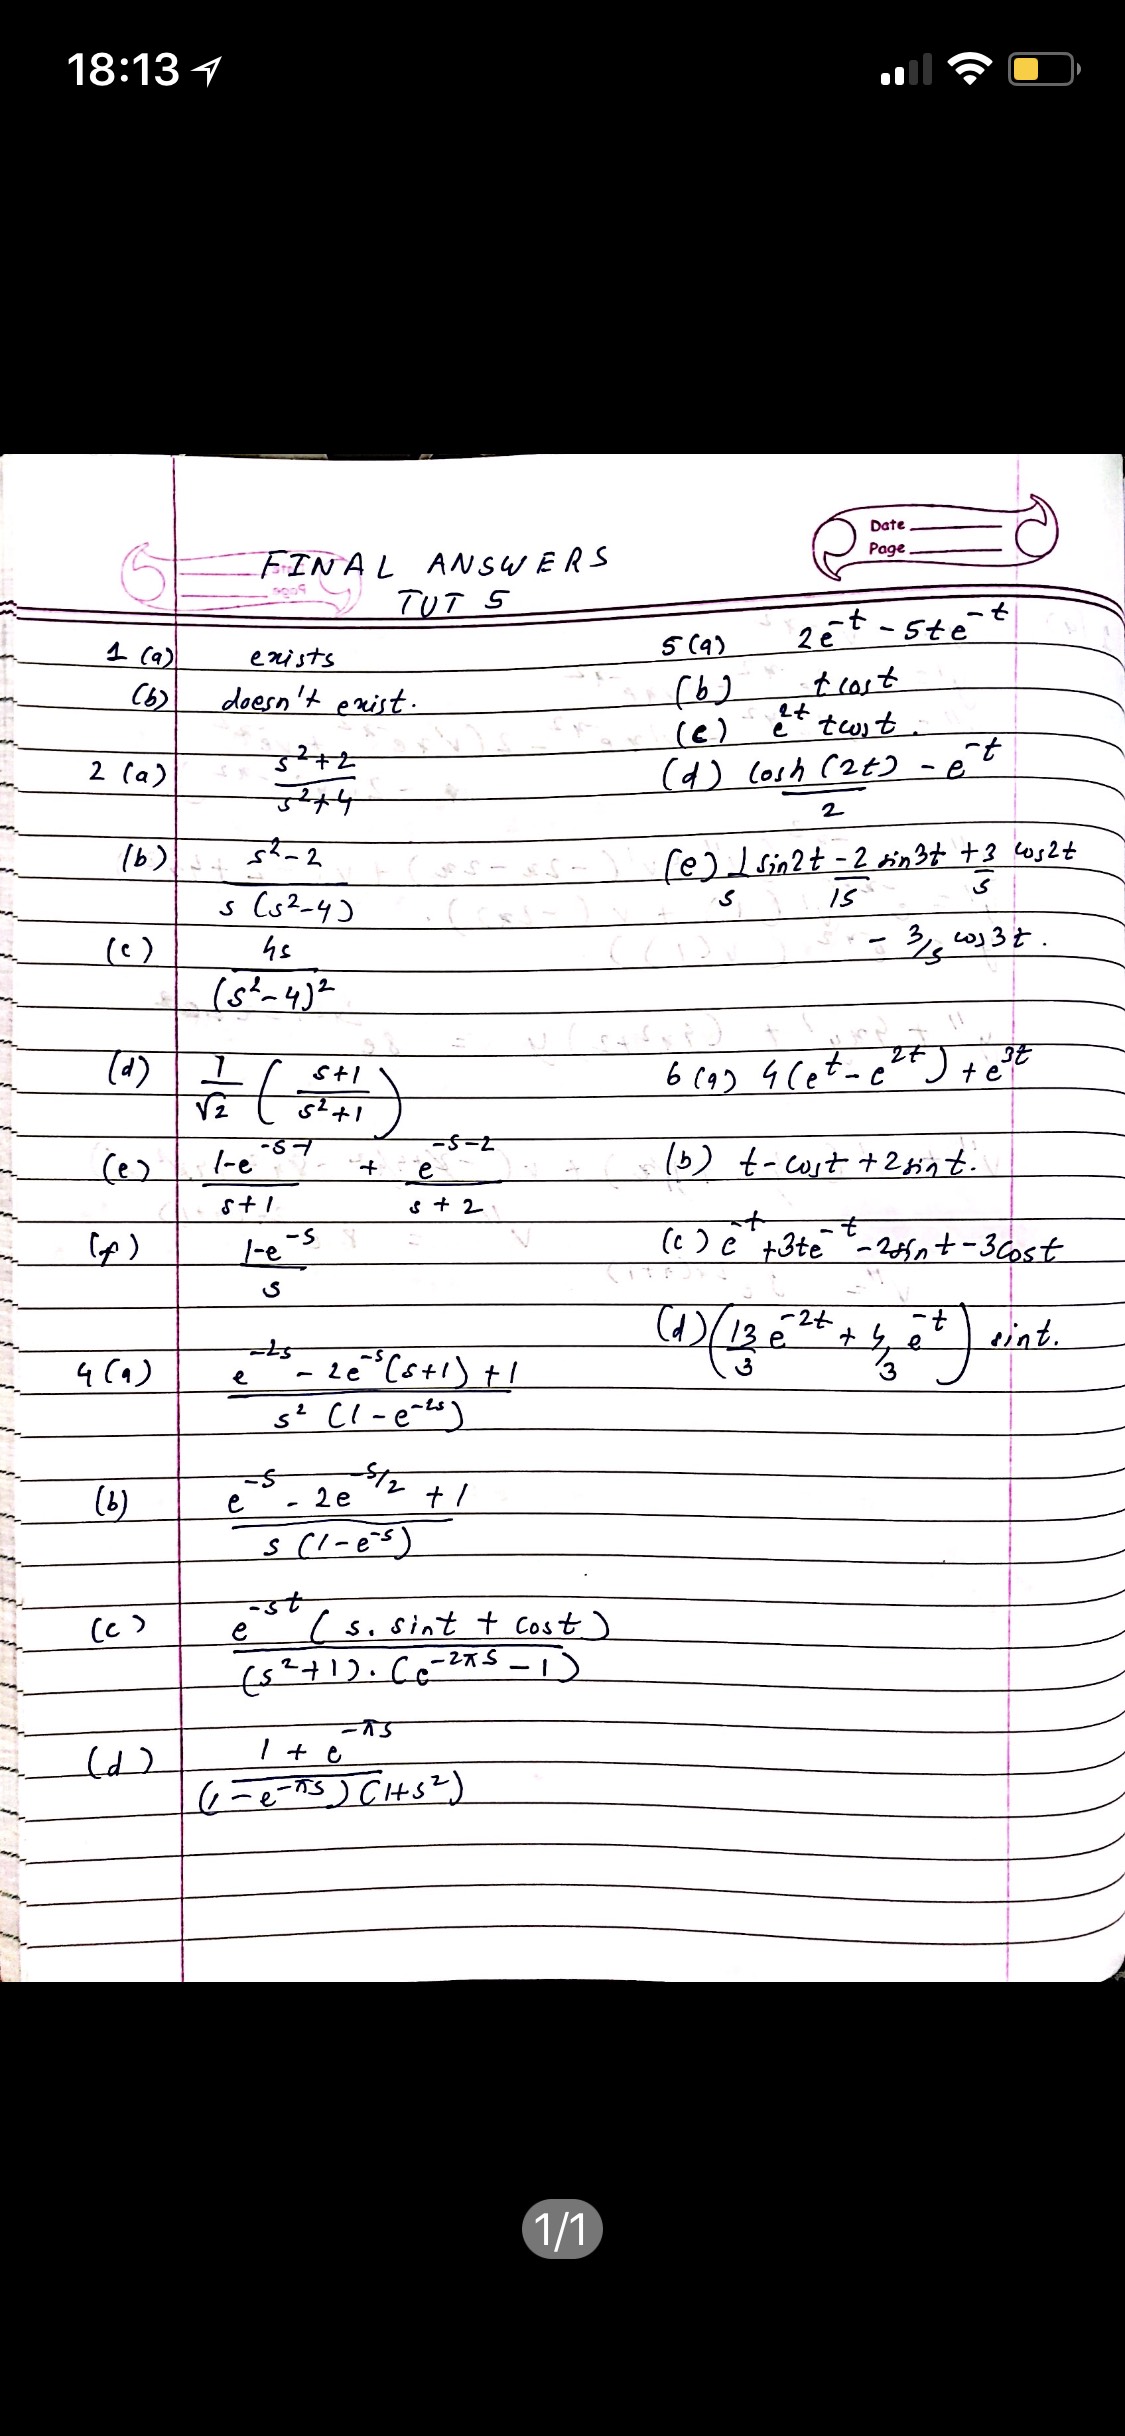 18:13
Date
Page
FINAL ANSWERS
TUT 5
1 (a) exists
(b) doesn't exist.
2 (a) s²+2 / s²+4
(b) s²-2 / s (s²-4)
(c) 4s / (s²-4)²
(d) 1/√2 ( s+1 / s²+1 )
(e) 1-e^-s-1 / s+1 + e^-s-2 / s+2
(f) 1-e^-s / s
4 (a) e^-2s - 2e^-s (s+1) +1 / s² (1-e^-2s)
(b) e^-s - 2e^-s/2 +1 / s (1-e^-s)
(c) e^-st ( s. sint + cost ) / (s²+1). (e^-2πs -1)
(d) 1 + e^-πs / (1-e^-πs) (1+s²)
5 (a) 2e^-t - 5te^-t
(b) t cost
(c) e^2t tcost.
(d) cosh (2t) / 2 - e^-t
(e) 1/5 sin2t - 2/15 sin3t + 3/5 cos2t
- 3/5 cos3t.
6 (a) 4(e^t - e^2t) + e^3t
(b) t - cost + 2sint.
(c) e^-t + 3te^-t - 2sint - 3cost
(d) ( 13/3 e^-2t + 4/3 e^-t ) sint.
1/1